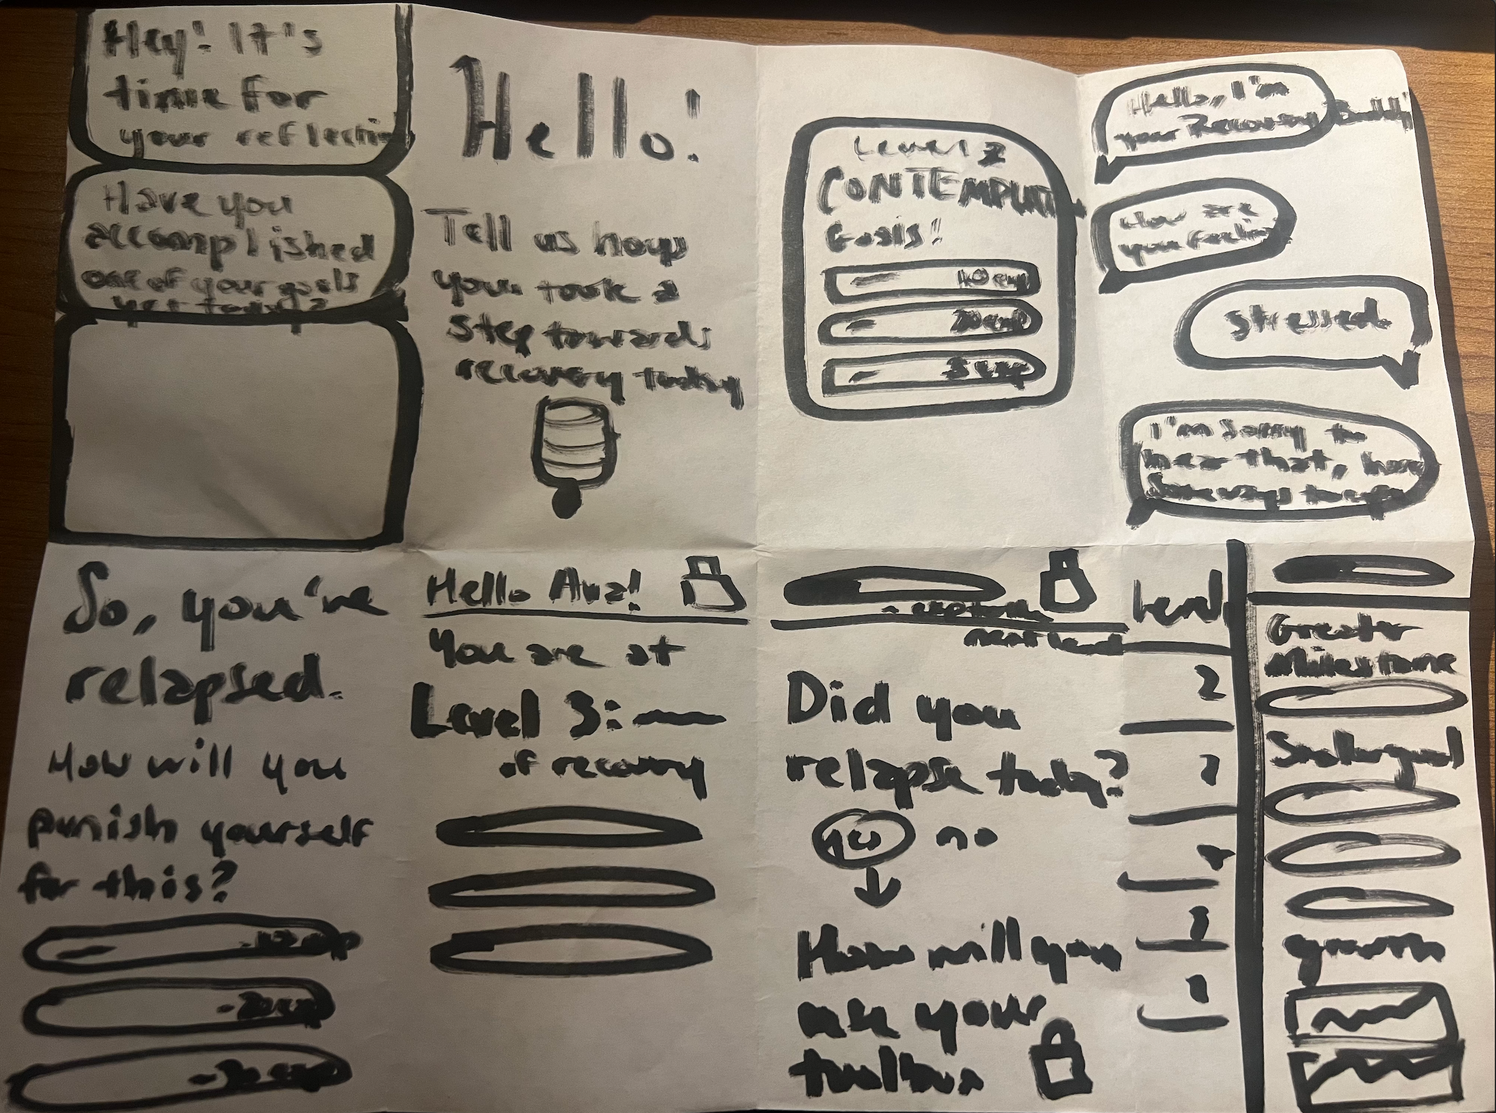 Hey! It's
time for
your reflection
Have you
accomplished
one of your goals
yet today?
Hello!
Tell us how
you took a
step towards
recovery today
Level 2
CONTEMPLAT
Goals!
Hello, I'm
your Recovery Buddy!
How are
you feeling
Stressed.
I'm sorry to
hear that, here
some ways to cope
So, you've
relapsed.
How will you
punish yourself
for this?
Hello Ava!
You are at
Level 3:
of recovery
- explore
next level
Did you
relapse today?
yes no
How will you
use your
toolbox
Level
2
Greater
Milestone
Smaller goal
growth